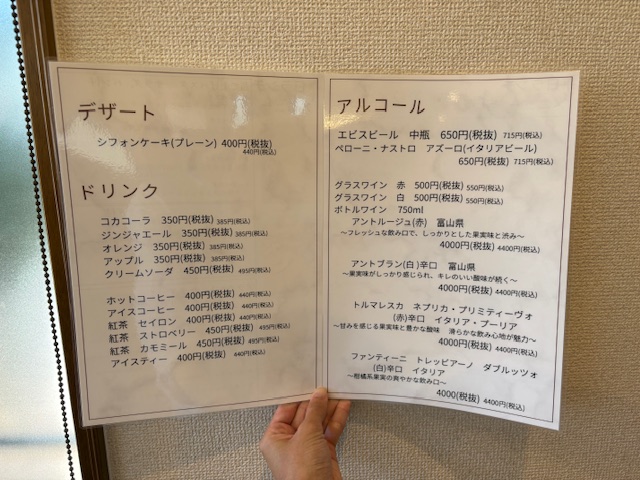 デザート
シフォンケーキ(プレーン) 400円(税抜)
440円(税込)
ドリンク
コカコーラ 350円(税抜) 385円(税込)
ジンジャエール 350円(税抜) 385円(税込)
オレンジ 350円(税抜) 385円(税込)
アップル 350円(税抜) 385円(税込)
クリームソーダ 450円(税抜) 495円(税込)
ホットコーヒー 400円(税抜) 440円(税込)
アイスコーヒー 400円(税抜) 440円(税込)
紅茶 セイロン 400円(税抜) 440円(税込)
紅茶 ストロベリー 450円(税抜) 495円(税込)
紅茶 カモミール 450円(税抜) 495円(税込)
アイスティー 400円(税抜) 440円(税込)
アルコール
エビスビール 中瓶 650円(税抜) 715円(税込)
ペローニ・ナストロ アズーロ(イタリアビール)
650円(税抜) 715円(税込)
グラスワイン 赤 500円(税抜) 550円(税込)
グラスワイン 白 500円(税抜) 550円(税込)
ボトルワイン 750ml
アントルージュ(赤) 富山県
～フレッシュな飲み口で、しっかりとした果実味と渋み～
4000円(税抜) 4400円(税込)
アントブラン(白)辛口 富山県
～果実味がしっかり感じられ、キレのいい酸味が続く～
4000円(税抜) 4400円(税込)
トルマレスカ ネプリカ・プリミティーヴォ
(赤)辛口 イタリア・プーリア
～甘みを感じる果実味と豊かな酸味 滑らかな飲み心地が魅力～
4000円(税抜) 4400円(税込)
ファンティーニ トレッビアーノ ダブルッツォ
(白)辛口 イタリア
～柑橘系果実の爽やかな飲み口～
4000(税抜) 4400円(税込)